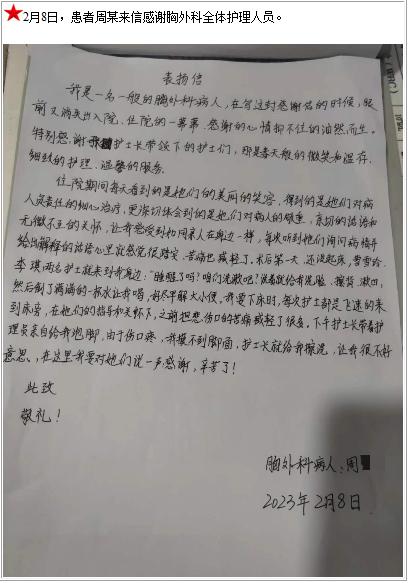 ★2月8日，患者周某来信感谢胸外科全体护理人员。
表扬信
我是一名一般的胸外科病人，在写这封感谢信的时候，眼
前又消失出入院、住院的一幕幕，感谢的心情抑不住的油然而生。
特别感谢 护士长带领下的护士们，那是春天般的微笑和温存，
细致的护理，温馨的服务。
住院期间每天看到的是她们的美丽的笑容，得到的是她们对病
人责任的细心治疗，更深切体会到的是她们对病人的尊重，亲切的话语和
无微不至的关怀，让我感受到如同亲人在身边一样，每次听到她们询问病情并
给出解释的话语心里就感觉很踏实，苦痛也减轻了，术后第一天，还没起床，曹雪玲、
李琪两名护士就来到我身边："睡醒了吗？咱们洗漱吧？"说着就给我洗脸、擦背、漱口，
然后倒了满满的一杯水让我喝，好尽早解大小便，我要下床时，每次护士都是飞速的来
到床旁，在她们的指导和关怀下，之前把愁伤口的苦痛减轻了很多，下午护士长带着护
理员亲自给我泡脚，由于伤口疼，我摸不到脚面，护士长就给我擦洗，让我很不好
意思，在这里我要对她们说一声感谢，辛苦了！
此致
敬礼！
胸外科病人：周
2023年2月8日